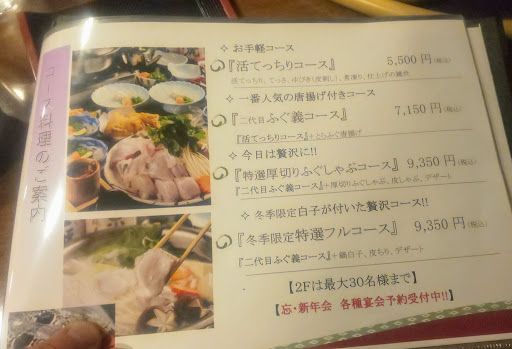 コース料理のご案内
✧ お手軽コース
『活てっちりコース』 5,500 円(税込)
活てっちり、てっさ、ゆびき(皮刺し)、煮凍り、仕上げの雑炊
✧ 一番人気の唐揚げ付きコース
『二代目ふぐ義コース』 7,150 円(税込)
『活てっちりコース』+とらふぐ唐揚げ
✧ 今日は贅沢に!!
『特選厚切りふぐしゃぶコース』 9,350 円(税込)
『二代目ふぐ義コース』+厚切りふぐしゃぶ、皮しゃぶ、デザート
✧ 冬季限定白子が付いた贅沢コース!!
『冬季限定特選フルコース』 9,350 円(税込)
『二代目ふぐ義コース』+鍋白子、皮ちり、デザート
【2Fは最大30名様まで】
【忘・新年会 各種宴会予約受付中!!】